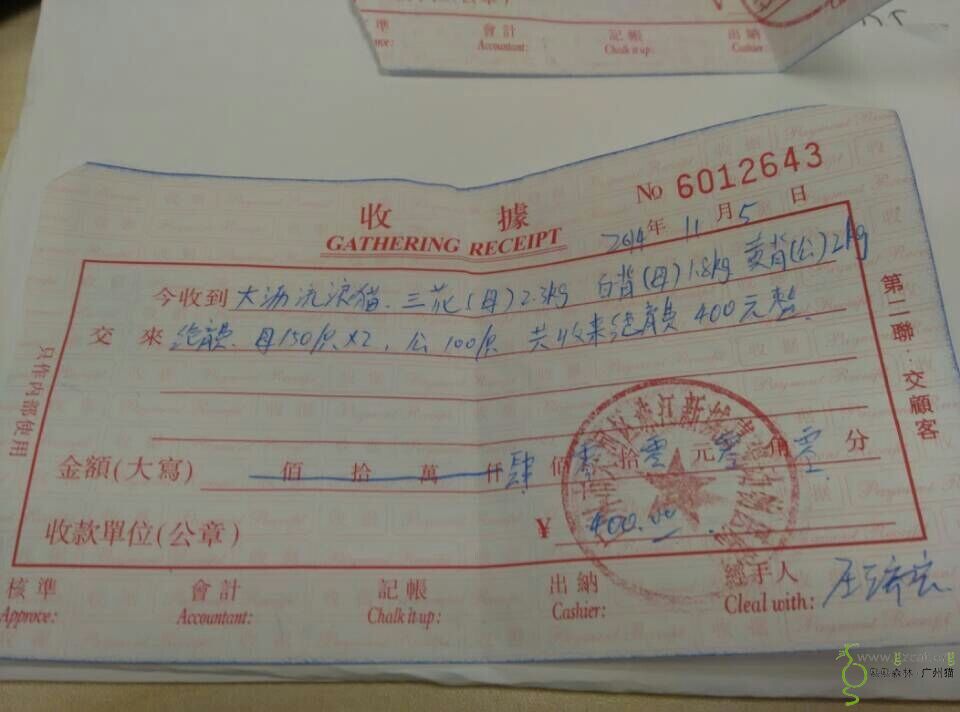 準 會計 記帳 出納
Accountant: Chalk it up: Cashier:
No 6012643
收據
GATHERING RECEIPT
2014年 11月 5日
今收到 大沥流浪猫. 三花(母)2.3kg 白背(母)1.8kg 黄背(公)2kg
交來 绝育费 母150元×2, 公100元 共收来绝育费 400元整.
金額(大寫) 佰 拾 萬 仟 肆 佰 零 拾 零 元 零 角 零 分
收款單位(公章) ¥ 400.00
核準 會計 記帳 出納 經手人
Approve: Accountant: Chalk it up: Cashier: Cleal with:
第二聯:交顧客
只作內部使用
www.gzcat.org
广州猫